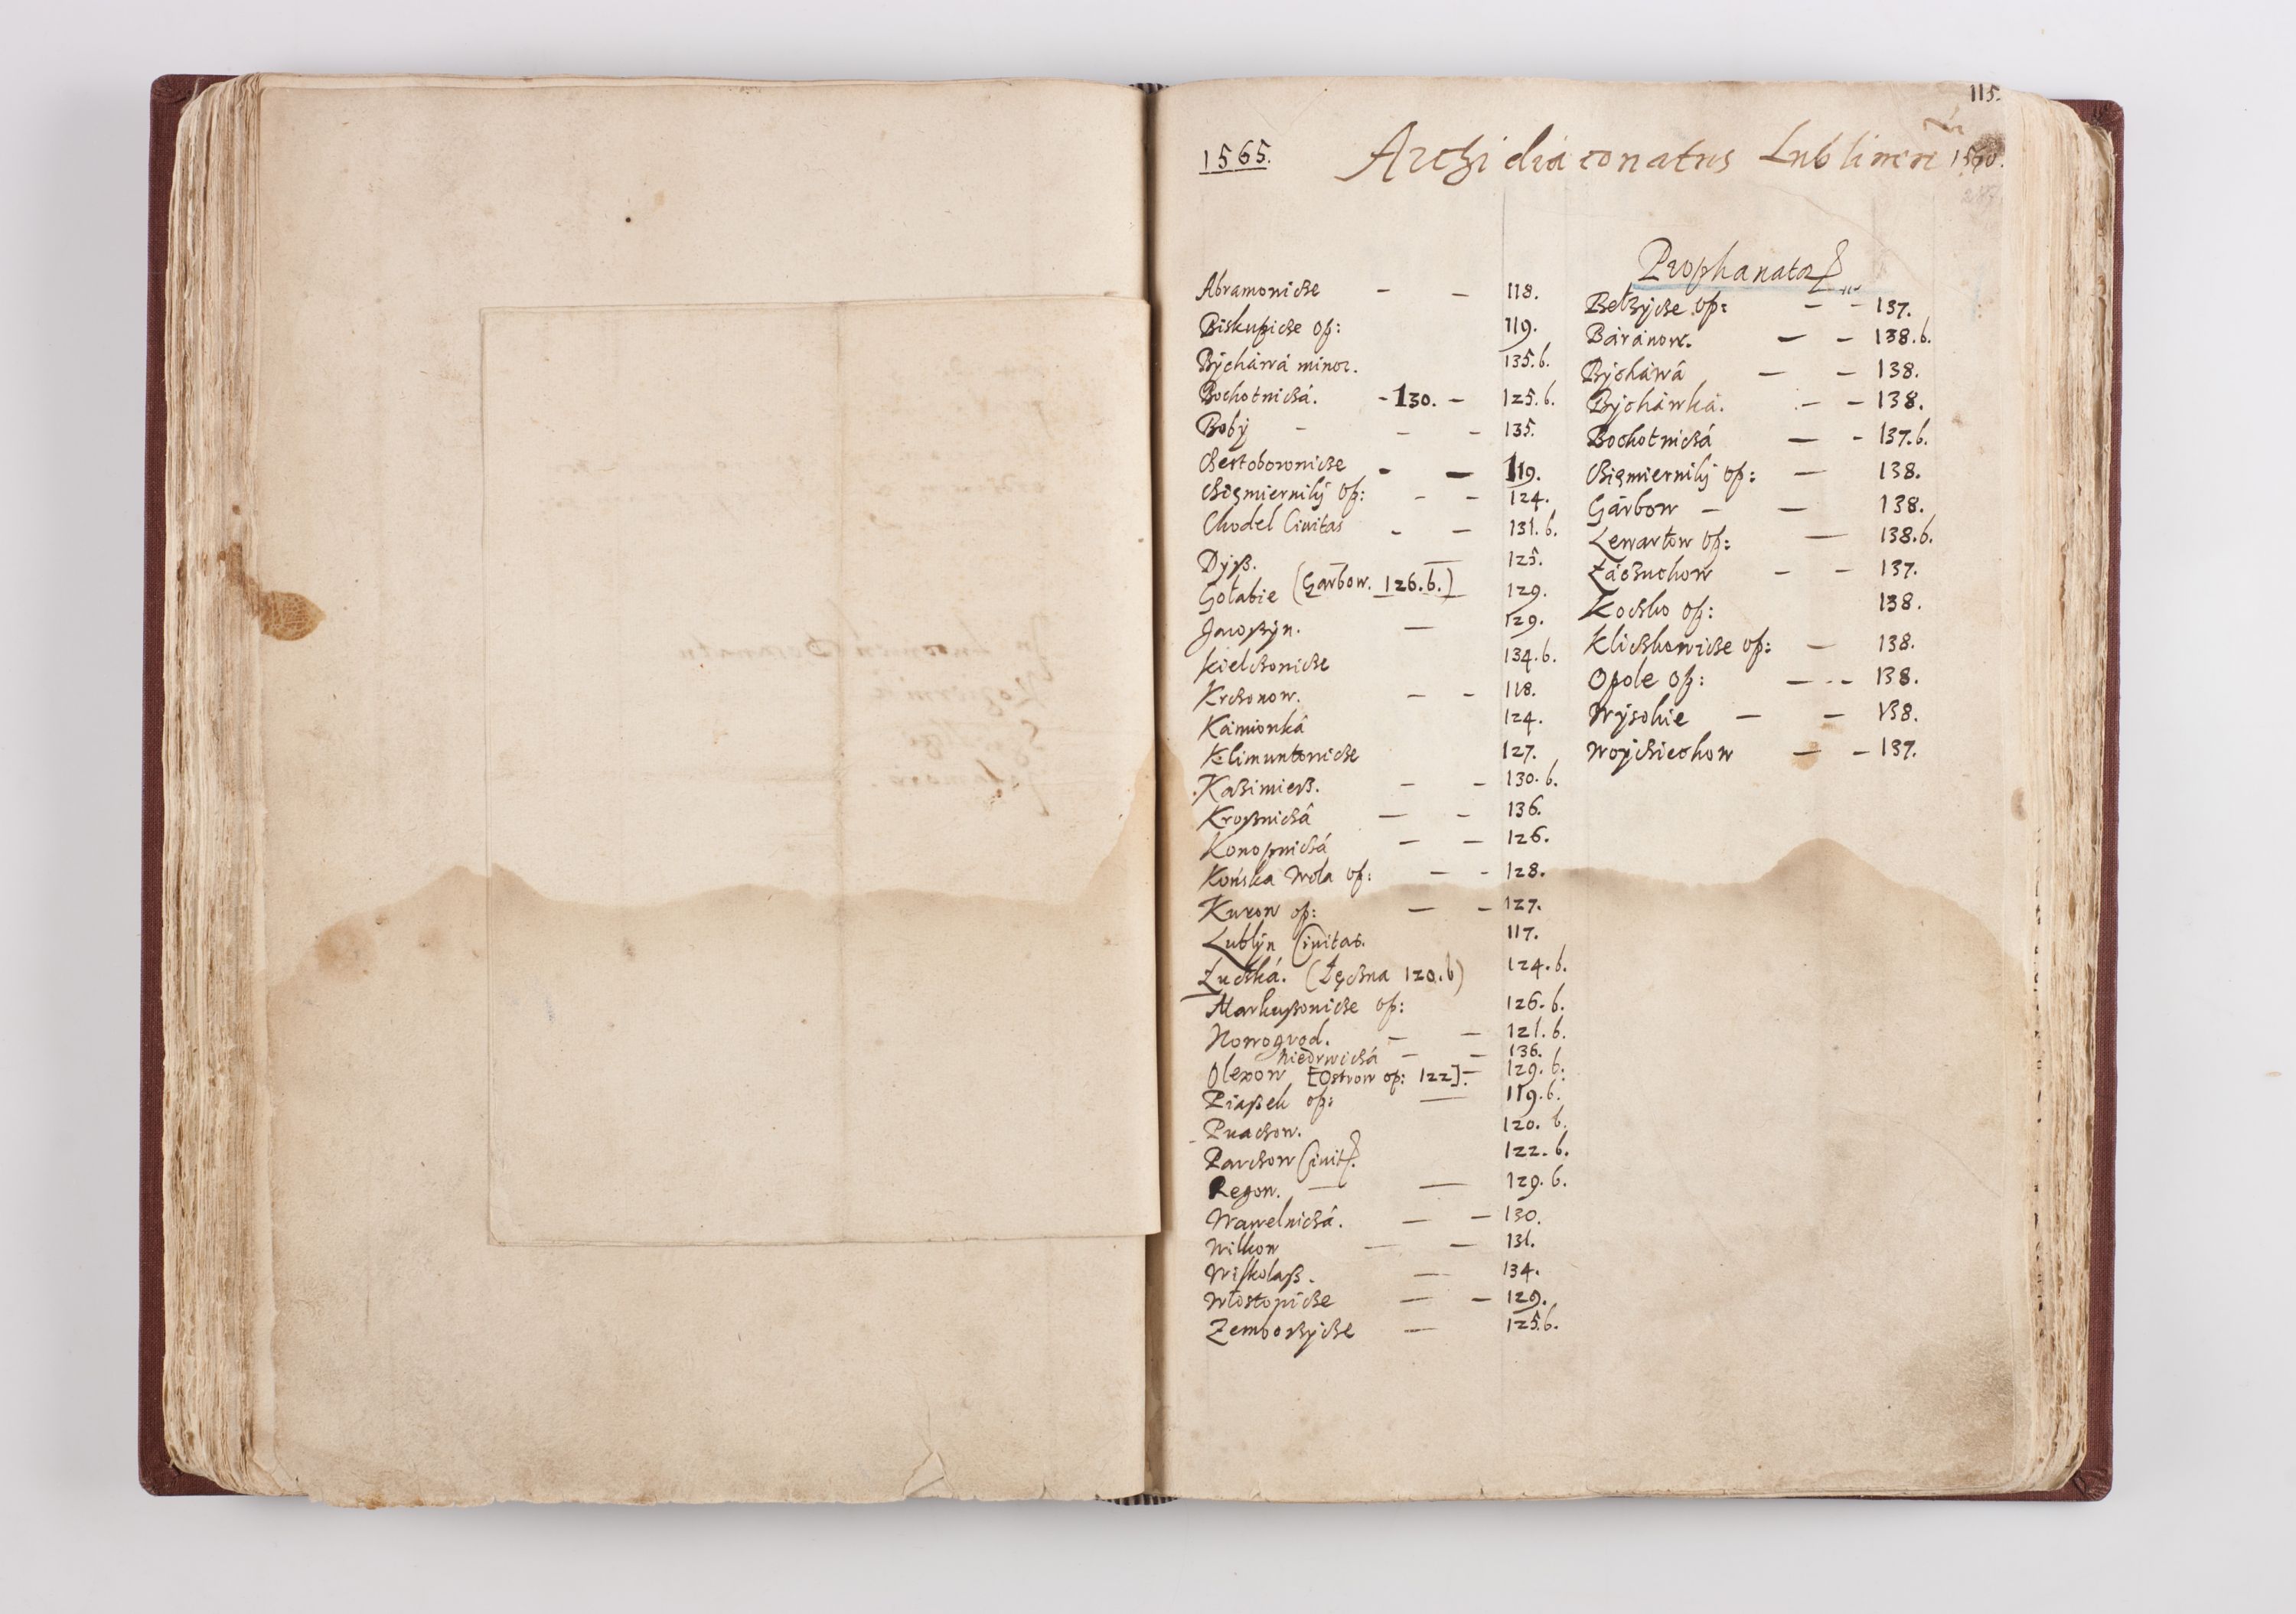 115.
1565. Archidiaconatus Lublinen̄
Abramowicze - - 118.
Biskupicze op: 119.
Bÿcháwá minor. 135.b.
Bochotniczá. - 130. - 125.b.
Bobÿ - - - 135.
Czestoborowicze - - 119.
Czięmiernikÿ op: - - 124.
Chodel Ciuitas - - 131.b.
Dÿss. - - 125.
Gołabie (Garbow. 126.b.) 129.
Jaroszÿn. - 129.
Kielczowicze 134.b.
Krczonow. - - 118.
Kámionká 124.
Klimuntowicze 127.
Kazimierz. - - 130.b.
Krassniczá - - 136.
Konopniczá - - 126.
Końska Wola op: - - 128.
Kurow op: - - 127.
Lublÿn Ciuitas. 117.
Łuczká. (Łęczna 120.b) 124.b.
Markussowicze op: 126.b.
Nowogrod. - - 121.b.
Niedrwiczá - - 136.
Olexow [Ostrow op: 122]. - 129.b.
Piassek op: - 119.b.
Puaczow. 120.b.
Parczow Ciuit. 122.b.
Regow. - - 129.b.
Wawelniczá. - - 130.
Wilkow - - 131.
Wisskolass. - 134.
Włostopicze - - 129.
Zemborzÿcze - 125.b.
Prophanator
Bełzÿcze op: - - 137.
Báránow. - - 138.b.
Bÿcháwá - - 138.
Bÿchawká. - - 138.
Bochotniczá - - 137.b.
Czięmiernikÿ op: - 138.
Gárbow - - 138.
Lewartow op: - 138.b.
Łáczuchow - - 137.
Koczko op: 138.
Kliczkowicze op: - 138.
Opole op: - - - 138.
Wÿsokie - - 138.
Woÿcziechow - - 137.